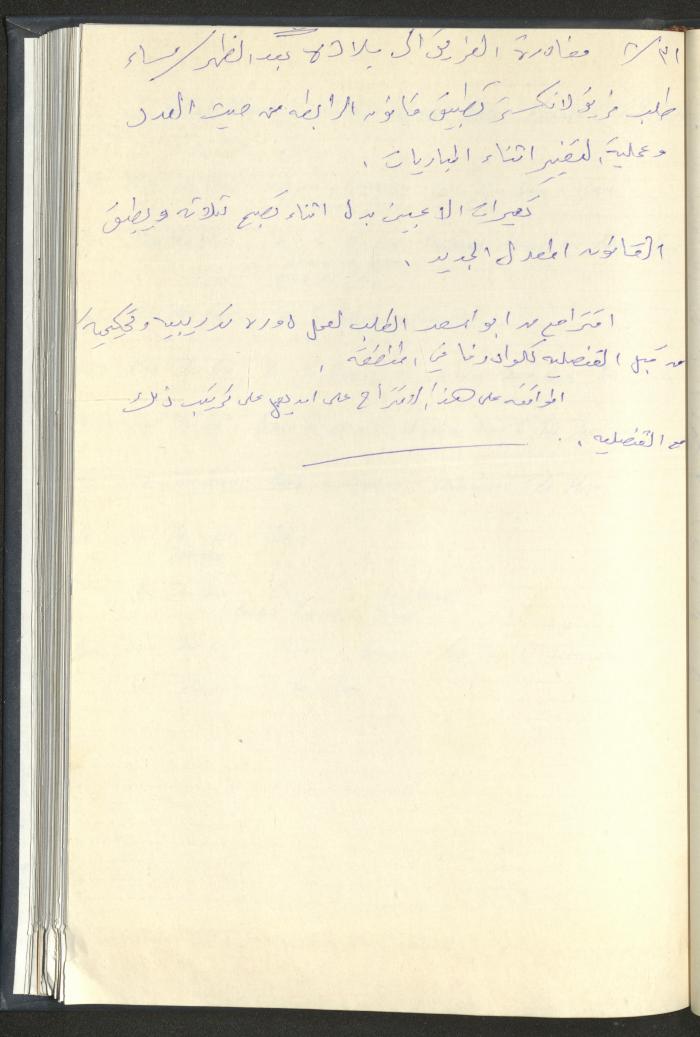 ٣١/٨ مغادرة الفريق الى بلاده بعد الظهر/مساء
طلب فريق لانكستر تطبيق قانون الرابطه من حيث العدد
وعملية التغيير اثناء المباريات .
تغيرات الاعبين بدل اثناء تصبح ثلاثه ويطبق
القانون المعدل الجديد .
اقتراح من ابو اسعد الطلب لعمل دورة تدريبيه وتحكيميه
من قبل القنصليه لكوادرنا في المنطقه .
الموافقه على هذا الاقتراح على ان على ترتيب ذلك
مع القنصليه .